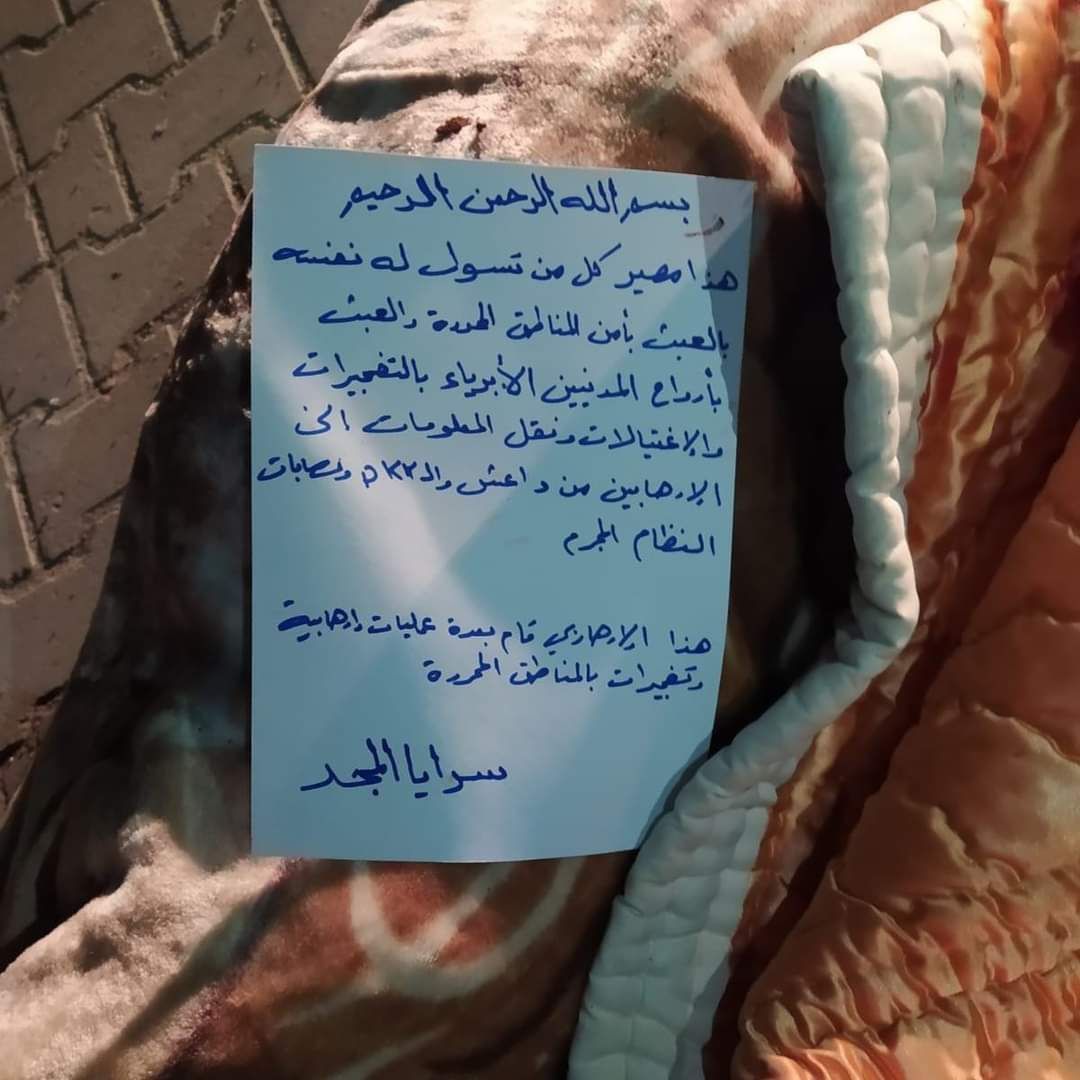 بسم الله الرحمن الرحيم
هذا مصير كل من تسول له نفسه
بالعبث بأمن المناطق المحررة والعبث
بأرواح المدنيين الأبرياء بالتفجيرات
والإغتيالات ونقل المعلومات الى
الإرهابين من داعش والـ PKK وعصابات
النظام المجرم
هذا الإرهابي قام بعدة عمليات إرهابية
وتفجيرات بالمناطق المحررة
سرايا المجد